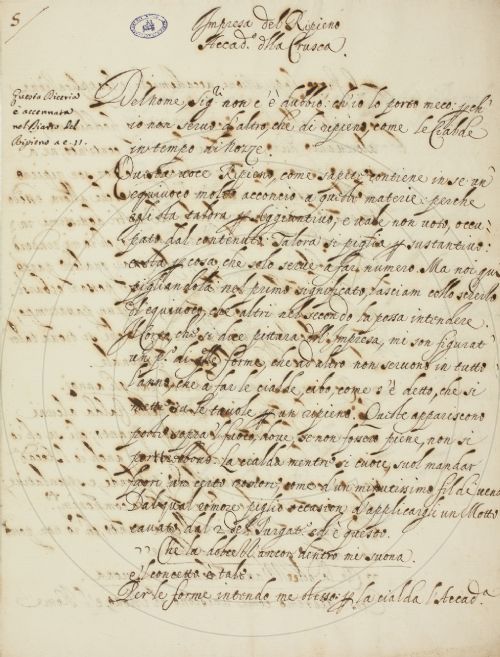 5
Impresa del Ripieno
Accad.º dlla Crusca.
Questa Diceria
è accennata
nel Diario del
Ripieno a c. 11.
Del nome, Sig.ri non c'è dubbio: ch'io lo porto meco; pch'
io non servo d'altro, che di ripieno, come le Cialde
in tempo di Nozze.
Questa voce Ripieno, come sapete contiene in se un'
equivoco molto acconcio a queste materie: perche
talora p aggiuntivo, e vale non voto, occu-
pato dal contenuto. Talora si piglia p sustantivo:
e sta p cosa che solo serve a far numero. Ma noi qui
pigliandola nel primo significato, lasciam collo scherzo
d'equivoco, che altri nel secondo la possa intendere.
Il Corpo, che si dice pittura dll'Impresa, me son figurat
un p.º di forme, che ad altro non servono in tutto
l'anno, che a far le cialde, cibo, come s'è detto, che si
mette su le tavole p un ripieno. Queste appariscono
sopra 'l fuoco, dove, se non fosser piene, non si
la cialda mentre si cuoce, suol mandar
fuori un certo romore, come d'un minutissimo fil di vento
Dal qual romore piglio occasion d'applicargli un Motto
cavato dal 2 del Purgat.º ed è questo.
Che la dolcezza ancor dentro mi suona.
e 'l concetto è tale.
Per le forme intendo me stesso: p la cialda l'Accad.a